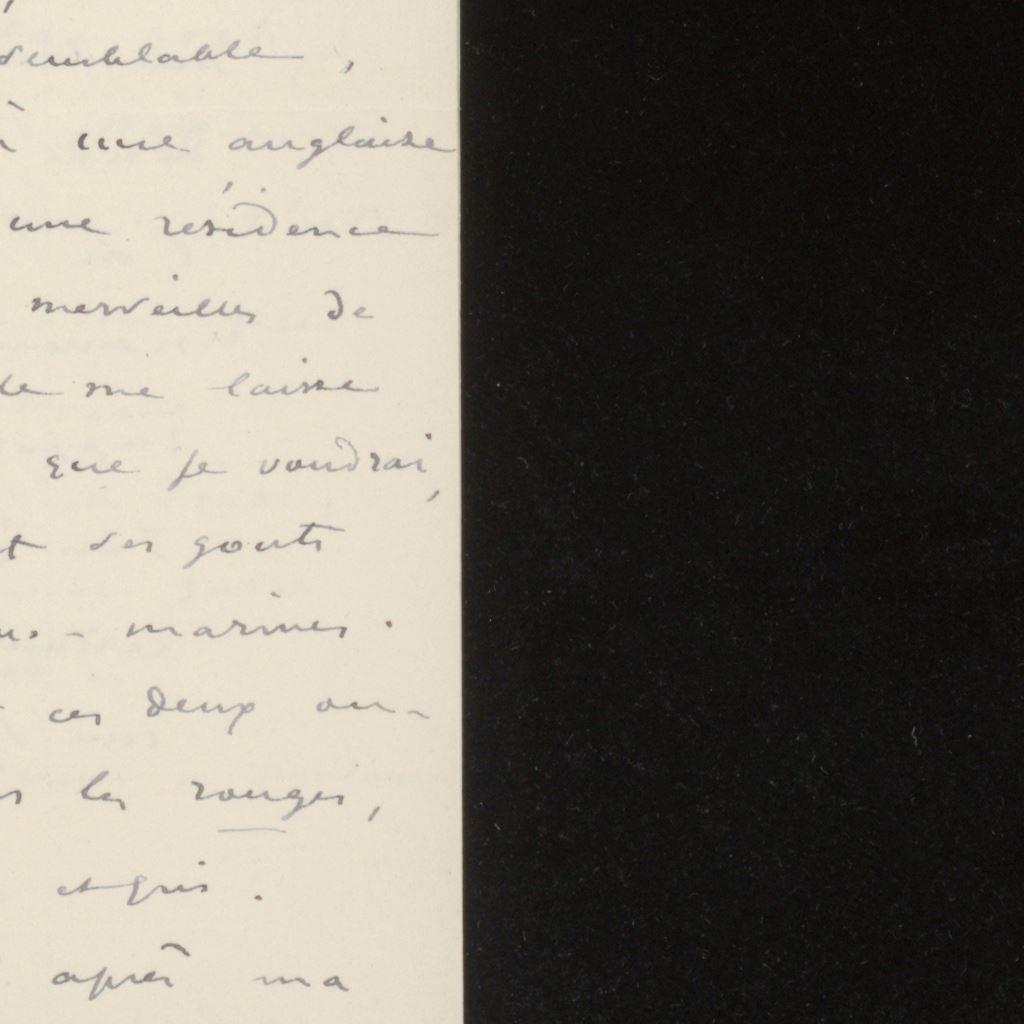 semblable,
à une anglaise
une résidence
merveilles de
de me laisse
que je voudrai,
t des gouts
- marines.
ces deux ou-
les rouges,
et gris.
après ma